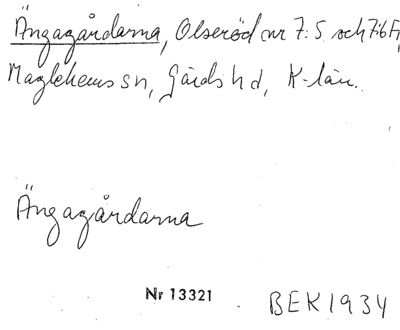 Ängagårdarna, Olseröd nr 7:5 och 7:6 Fr,
Maglehems sn, Gärds hd, K-län.
Ängagårdarna
Nr 13321
BEK1934